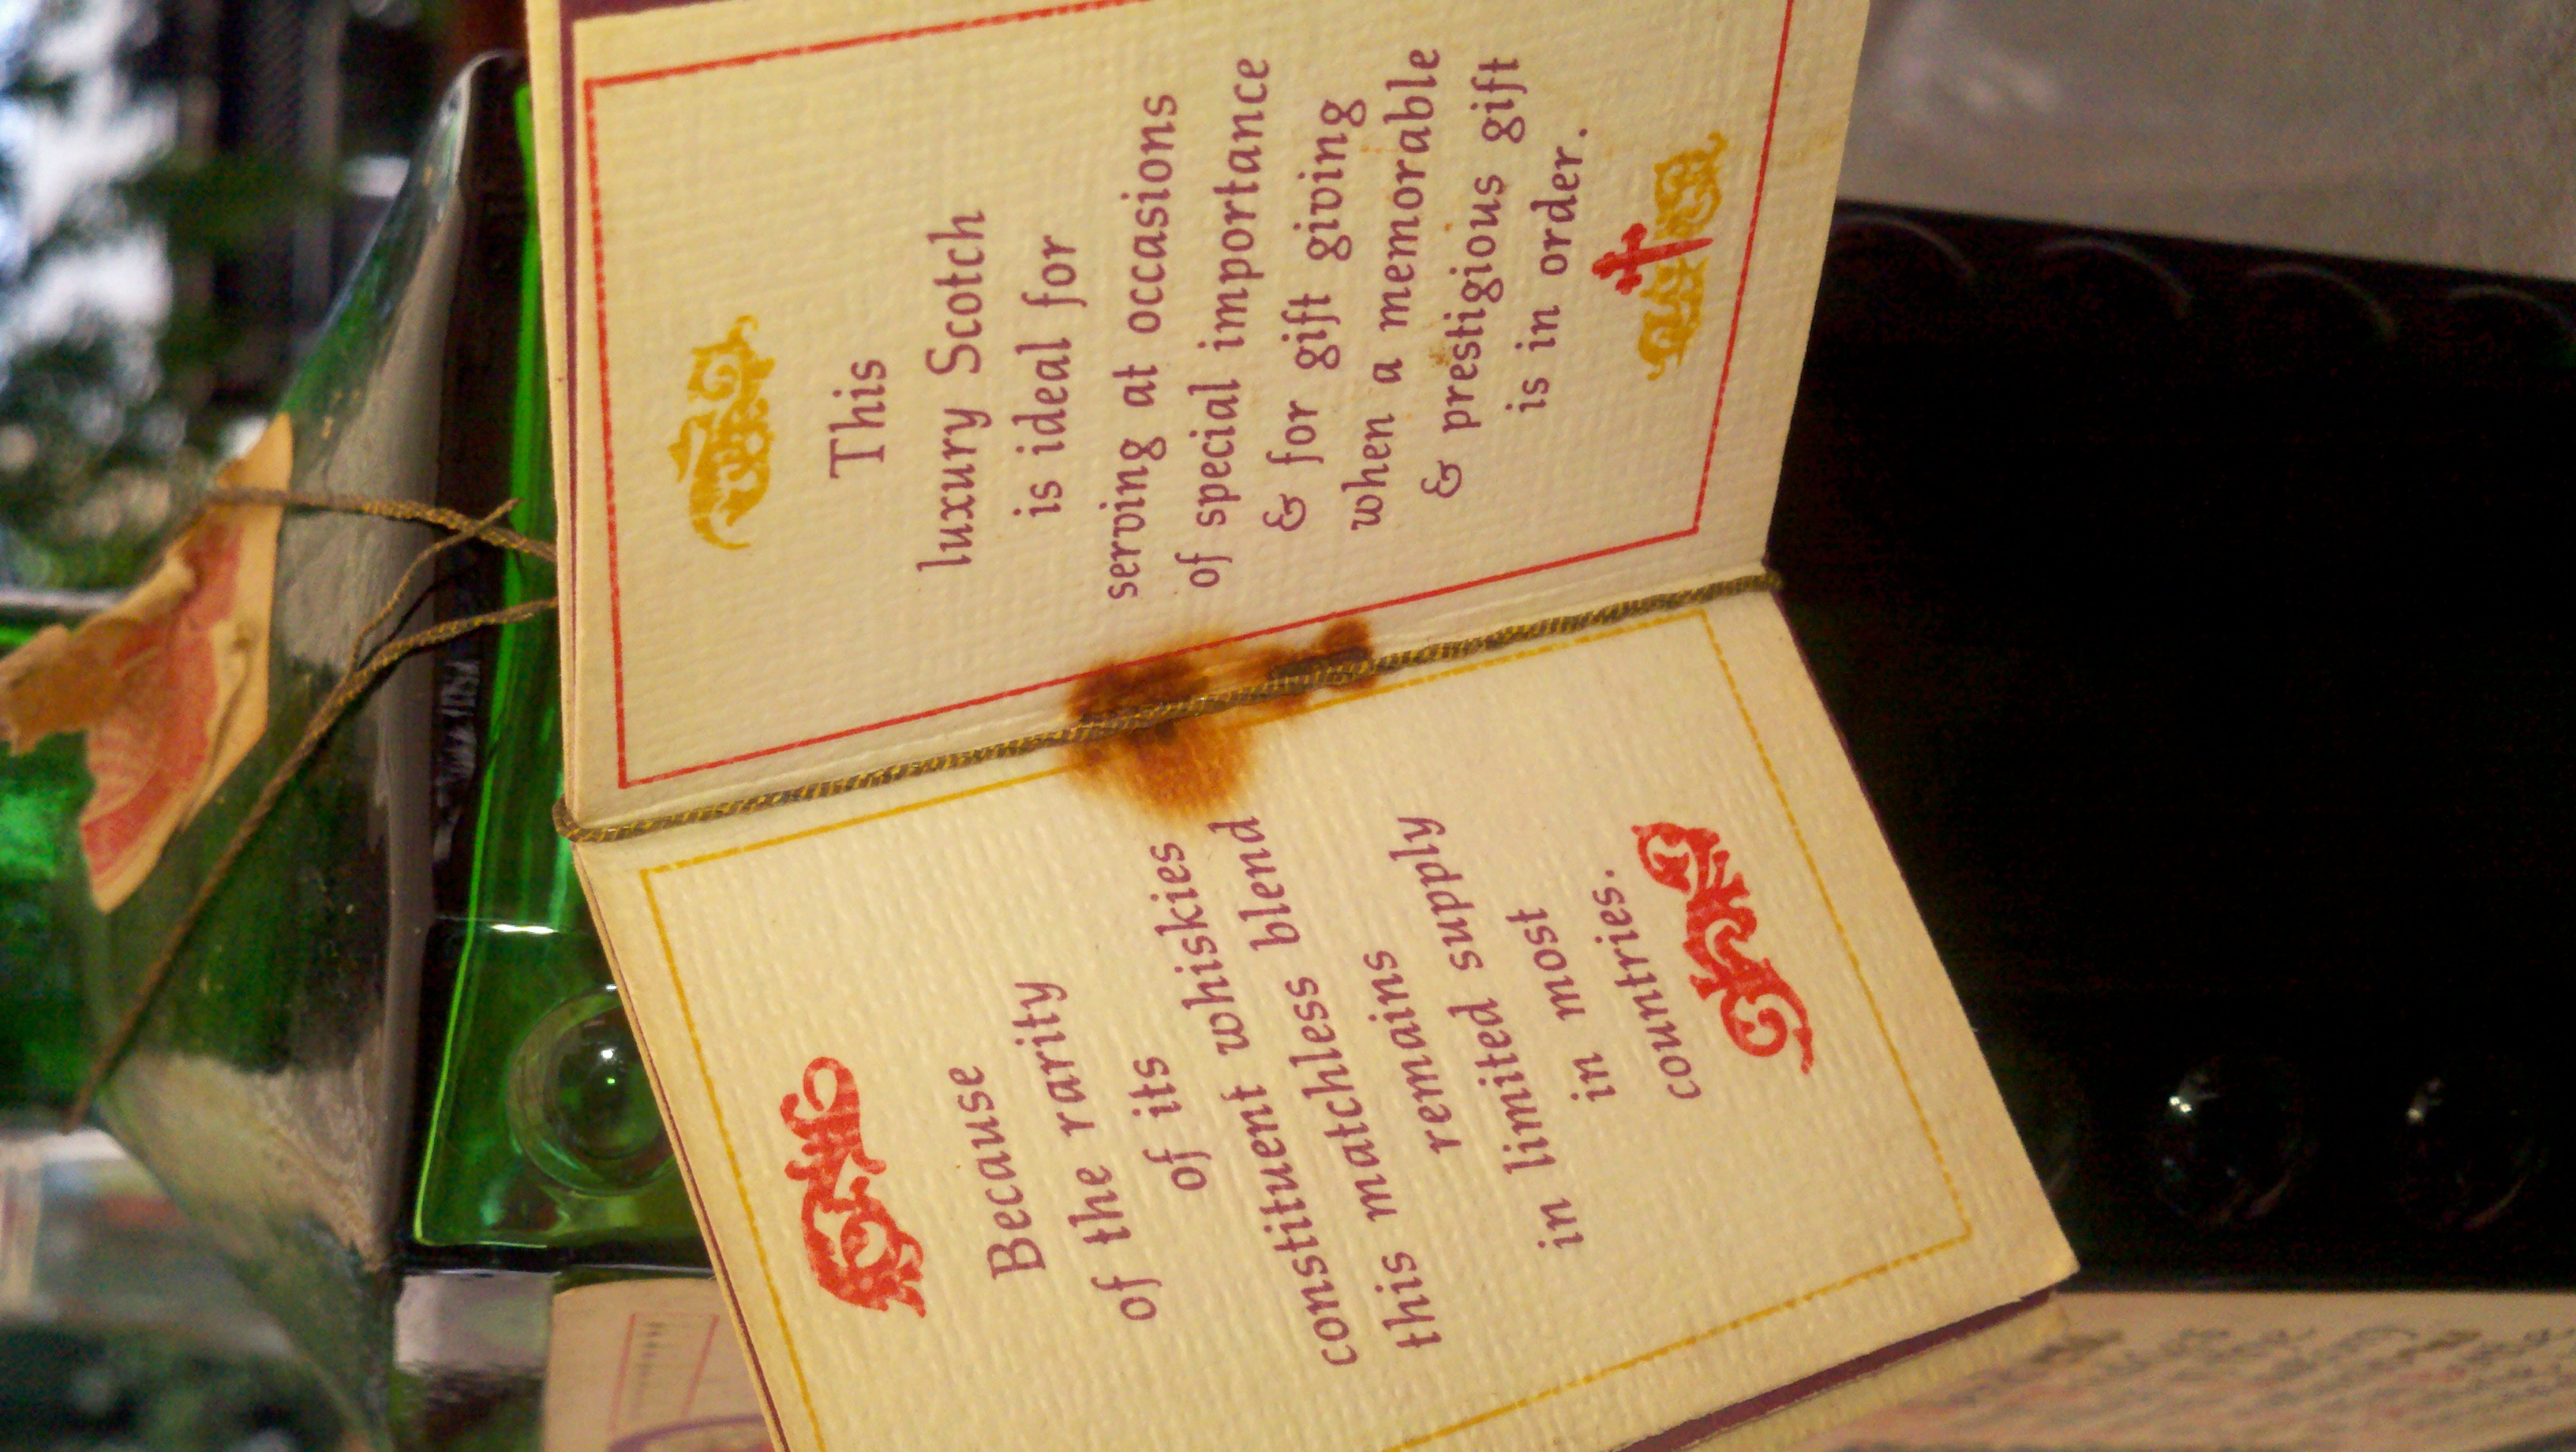 This
luxury Scotch
is ideal for
serving at occasions
of special importance
& for gift giving
when a memorable
& prestigious gift
is in order.
Because
of the rarity
of its
constituent whiskies
this matchless blend
remains
in limited supply
in most
countries.